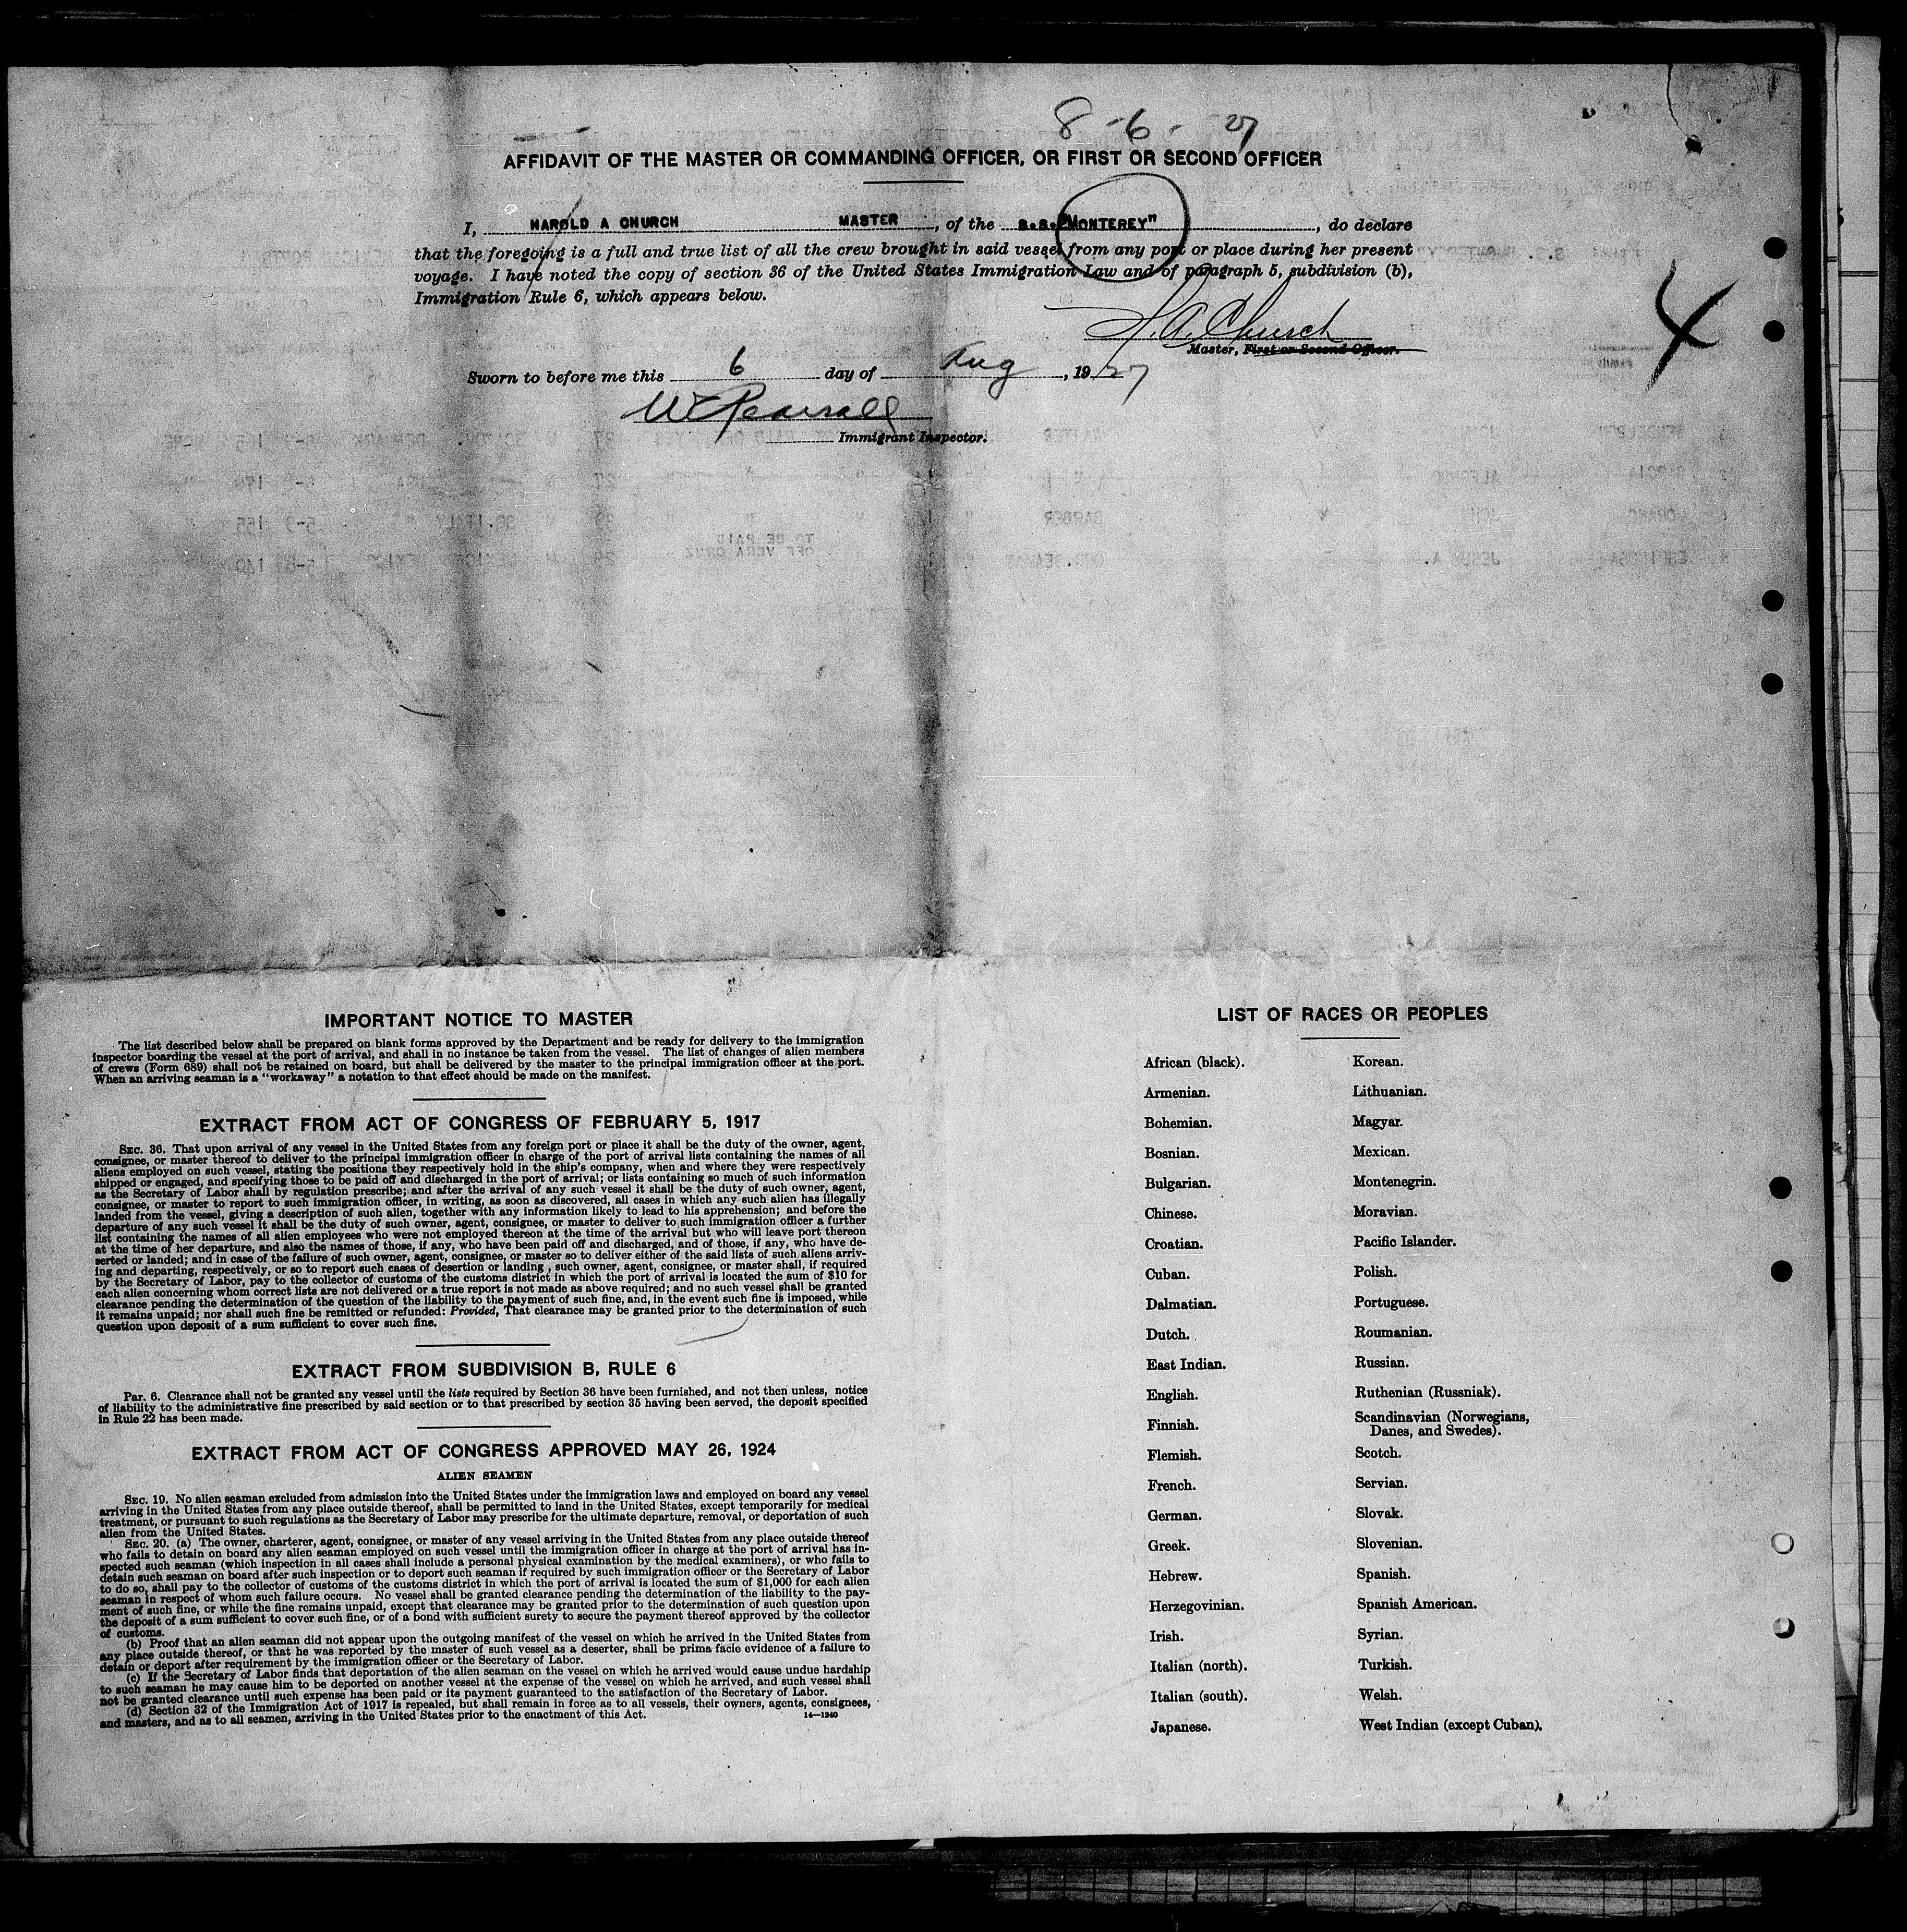 8-6-27
AFFIDAVIT OF THE MASTER OR COMMANDING OFFICER, OR FIRST OR SECOND OFFICER
I, HAROLD A CHURCH MASTER, of the s.s."MONTEREY", do declare
that the foregoing is a full and true list of all the crew brought in said vessel from any port or place during her present
voyage. I have noted the copy of section 36 of the United States Immigration Law and of paragraph 5, subdivision (b),
Immigration Rule 6, which appears below.
H.A. Church
Master, First or Second Officer.
4
Sworn to before me this 6 day of Aug, 1927
Pearsall
Immigrant Inspector.
IMPORTANT NOTICE TO MASTER
The list described below shall be prepared on blank forms approved by the Department and be ready for delivery to the immigration
inspector boarding the vessel at the port of arrival, and shall in no instance be taken from the vessel. The list of changes of alien members
of crews (Form 689) shall not be retained on board, but shall be delivered by the master to the principal immigration officer at the port.
When an arriving seaman is a "workaway" a notation to that effect should be made on the manifest.
EXTRACT FROM ACT OF CONGRESS OF FEBRUARY 5, 1917
SEC. 36. That upon arrival of any vessel in the United States from any foreign port or place it shall be the duty of the owner, agent,
consignee, or master thereof to deliver to the principal immigration officer in charge of the port of arrival lists containing the names of all
aliens employed on such vessel, stating the positions they respectively hold in the ship's company, when and where they were respectively
shipped or engaged, and specifying those to be paid off and discharged in the port of arrival; or lists containing so much of such information
as the Secretary of Labor shall by regulation prescribe; and after the arrival of any such vessel it shall be the duty of such owner, agent,
consignee, or master to report to such immigration officer, in writing, as soon as discovered, all cases in which any such alien has illegally
landed from the vessel, giving a description of such alien, together with any information likely to lead to his apprehension; and before the
departure of any such vessel it shall be the duty of such owner, agent, consignee, or master to deliver to such immigration officer a further
list containing the names of all alien employees who were not employed thereon at the time of the arrival but who will leave port thereon
at the time of her departure, and also the names of those, if any, who have been paid off and discharged, and of those, if any, who have de-
serted or landed; and in case of the failure of such owner, agent, consignee, or master so to deliver either of the said lists of such aliens arriv-
ing and departing, respectively, or so to report such cases of desertion or landing , such owner, agent, consignee, or master shall, if required
by the Secretary of Labor, pay to the collector of customs of the customs district in which the port of arrival is located the sum of $10 for
each alien concerning whom correct lists are not delivered or a true report is not made as above required; and no such vessel shall be granted
clearance pending the determination of the question of the liability to the payment of such fine, and, in the event such fine is imposed, while
it remains unpaid; nor shall such fine be remitted or refunded: Provided, That clearance may be granted prior to the determination of such
question upon deposit of a sum sufficient to cover such fine.
EXTRACT FROM SUBDIVISION B, RULE 6
Par. 6. Clearance shall not be granted any vessel until the lists required by Section 36 have been furnished, and not then unless, notice
of liability to the administrative fine prescribed by said section or to that prescribed by section 35 having been served, the deposit specified
in Rule 22 has been made.
EXTRACT FROM ACT OF CONGRESS APPROVED MAY 26, 1924
ALIEN SEAMEN
SEC. 19. No alien seaman excluded from admission into the United States under the immigration laws and employed on board any vessel
arriving in the United States from any place outside thereof, shall be permitted to land in the United States, except temporarily for medical
treatment, or pursuant to such regulations as the Secretary of Labor may prescribe for the ultimate departure, removal, or deportation of such
alien from the United States.
SEC. 20. (a) The owner, charterer, agent, consignee, or master of any vessel arriving in the United States from any place outside thereof
who fails to detain on board any alien seaman employed on such vessel until the immigration officer in charge at the port of arrival has in-
spected such seaman (which inspection in all cases shall include a personal physical examination by the medical examiners), or who fails to
detain such seaman on board after such inspection or to deport such seaman if required by such immigration officer or the Secretary of Labor
to do so, shall pay to the collector of customs of the customs district in which the port of arrival is located the sum of $1,000 for each alien
seaman in respect of whom such failure occurs. No vessel shall be granted clearance pending the determination of the liability to the pay-
ment of such fine, or while the fine remains unpaid, except that clearance may be granted prior to the determination of such question upon
the deposit of a sum sufficient to cover such fine, or of a bond with sufficient surety to secure the payment thereof approved by the collector
of customs.
(b) Proof that an alien seaman did not appear upon the outgoing manifest of the vessel on which he arrived in the United States from
any place outside thereof, or that he was reported by the master of such vessel as a deserter, shall be prima facie evidence of a failure to
detain or deport after requirement by the immigration officer or the Secretary of Labor.
(c) If the Secretary of Labor finds that deportation of the alien seaman on the vessel on which he arrived would cause undue hardship
to such seaman he may cause him to be deported on another vessel at the expense of the vessel on which he arrived, and such vessel shall
not be granted clearance until such expense has been paid or its payment guaranteed to the satisfaction of the Secretary of Labor.
(d) Section 32 of the Immigration Act of 1917 is repealed, but shall remain in force as to all vessels, their owners, agents, consignees,
and masters, and as to all seamen, arriving in the United States prior to the enactment of this Act. 14—1240
LIST OF RACES OR PEOPLES
African (black). Korean.
Armenian. Lithuanian.
Bohemian. Magyar.
Bosnian. Mexican.
Bulgarian. Montenegrin.
Chinese. Moravian.
Croatian. Pacific Islander.
Cuban. Polish.
Dalmatian. Portuguese.
Dutch. Roumanian.
East Indian. Russian.
English. Ruthenian (Russniak).
Finnish. Scandinavian (Norwegians,
Danes, and Swedes).
Flemish. Scotch.
French. Servian.
German. Slovak.
Greek. Slovenian.
Hebrew. Spanish.
Herzegovinian. Spanish American.
Irish. Syrian.
Italian (north). Turkish.
Italian (south). Welsh.
Japanese. West Indian (except Cuban).